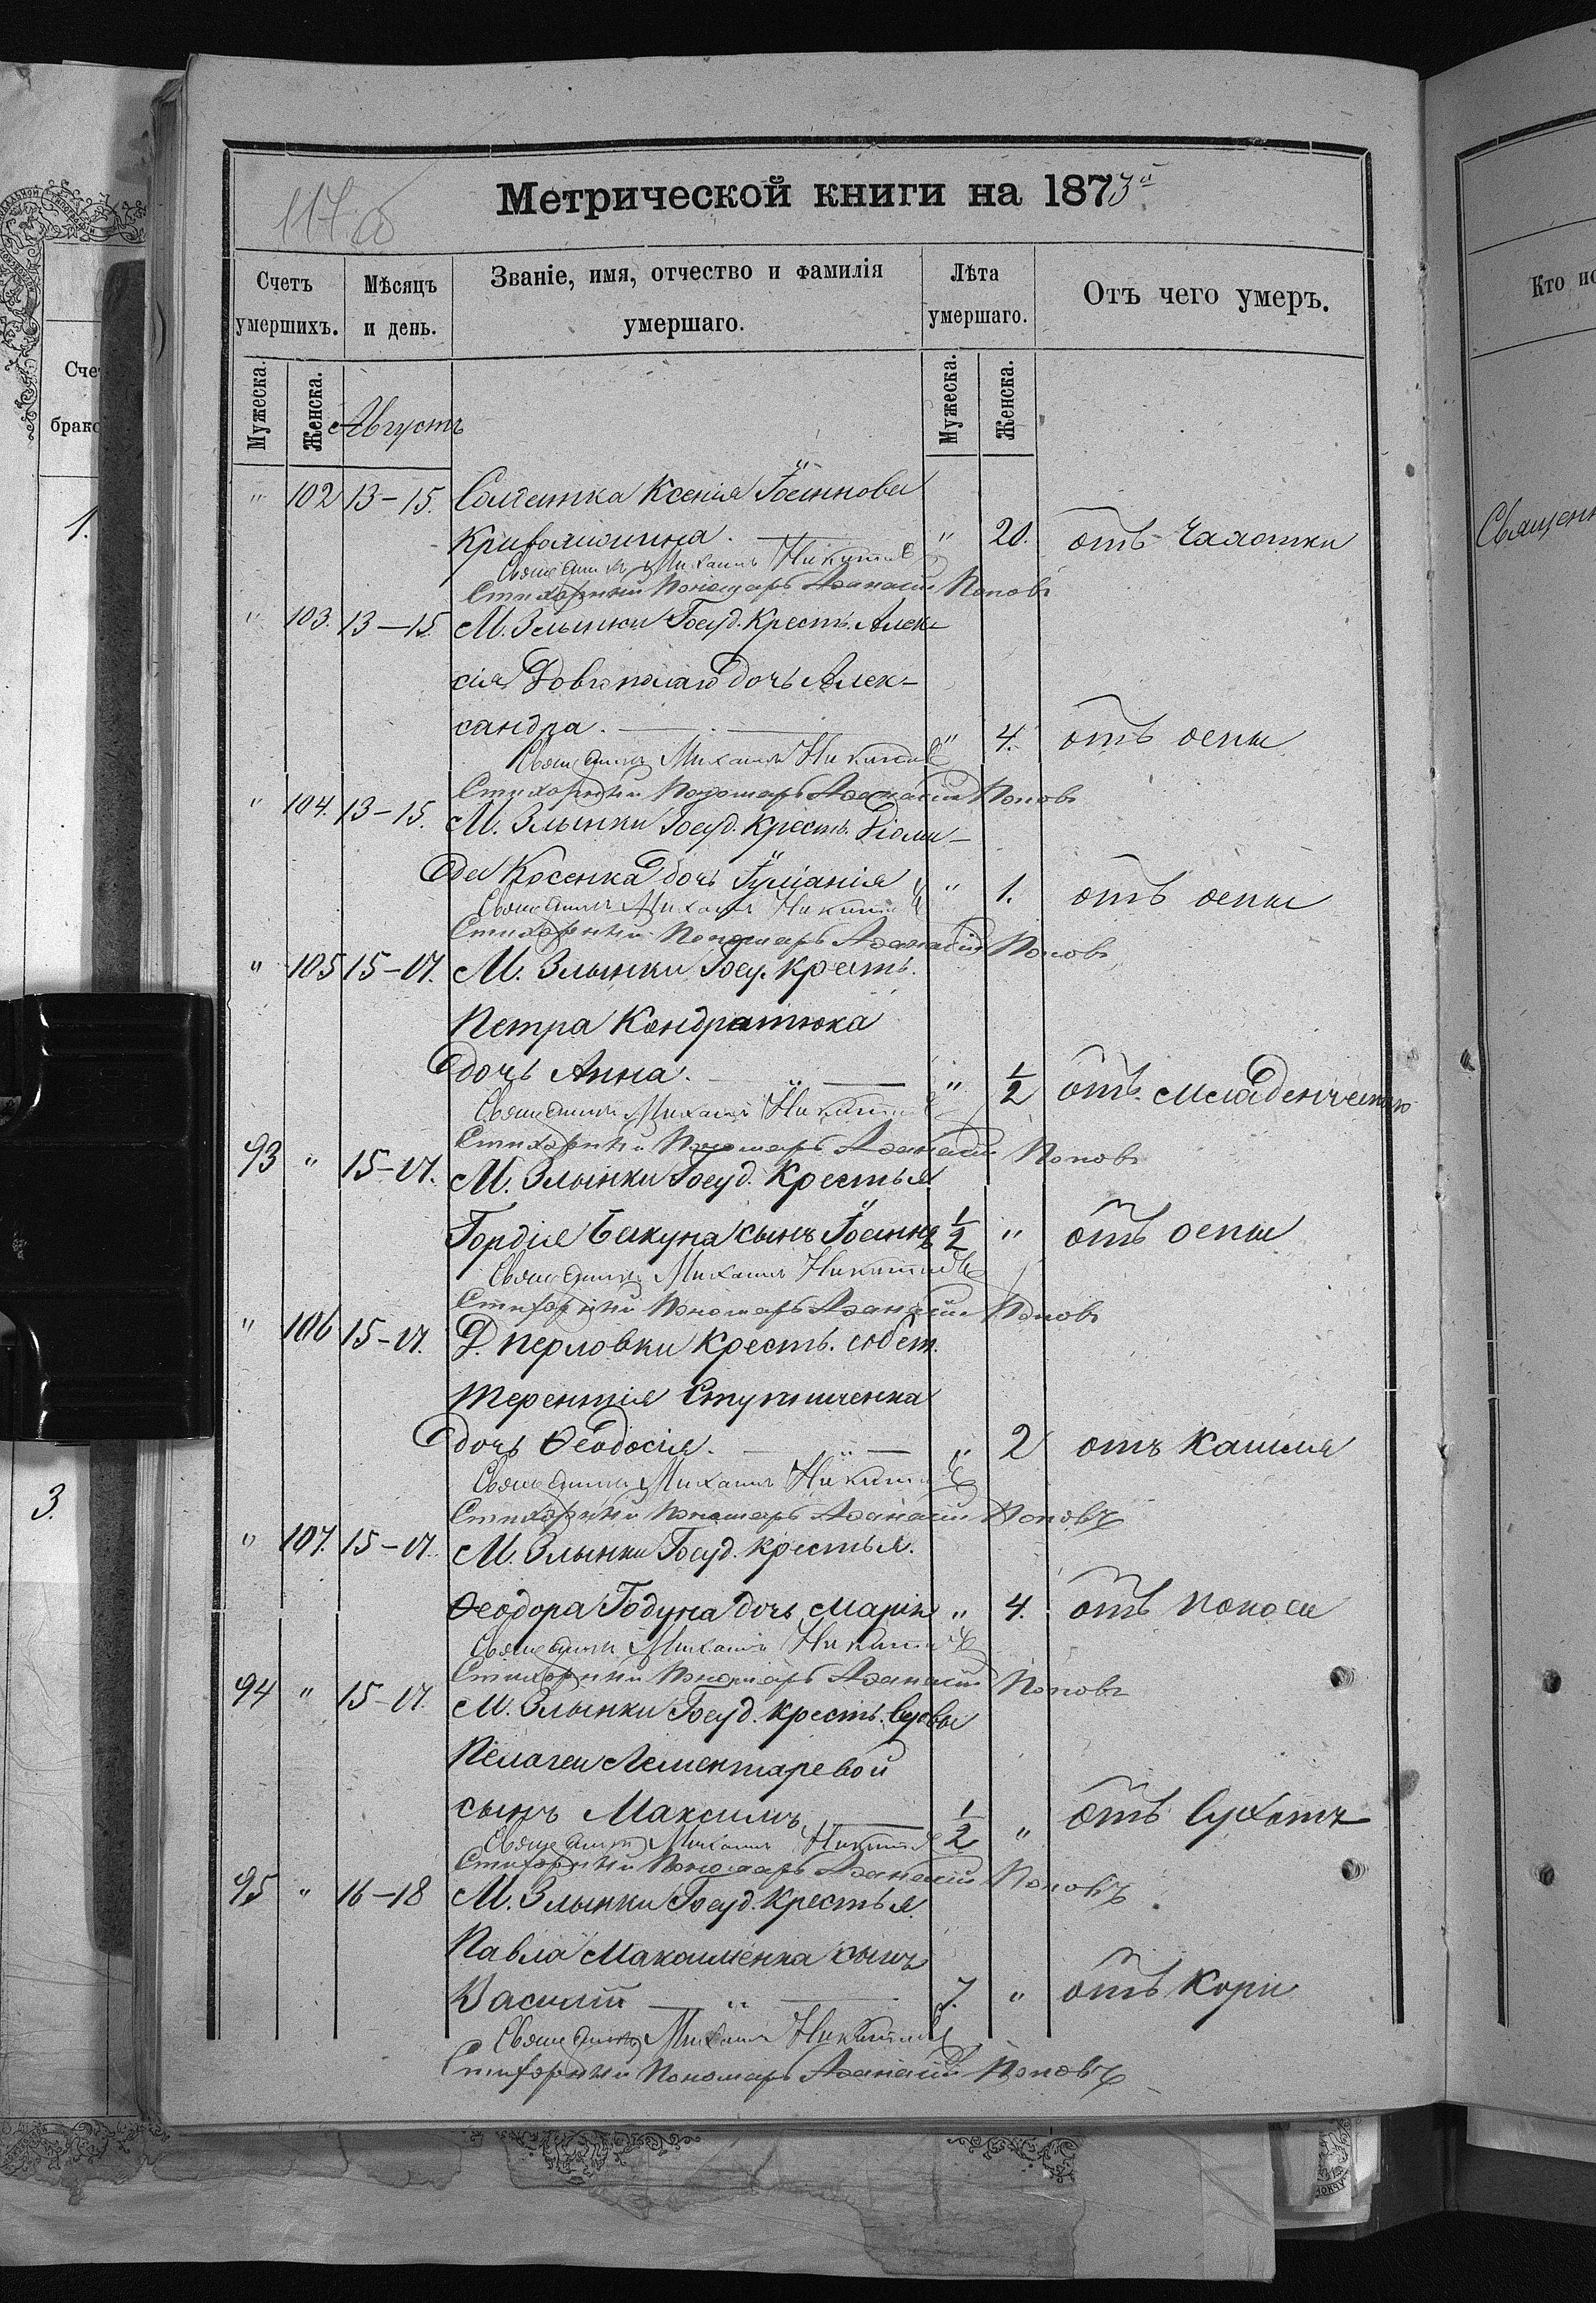 117 об
Метрической книги на 1873й
Счетъ умершихъ.
Мѣсяцъ и день.
Званіе, имя, отчество и фамилія умершаго.
Лѣта умершаго.
Отъ чего умеръ.
Мужеска. Женска. Августъ Мужеска. Женска.
" 102 13-15. Солдатка Ксенія Іоаннова
Кривошлыкина. " 20. отъ чахотки
Священникъ Михаилъ Никитинъ
Стихарный Пономарь Аѳанасій Поповъ
" 103. 13-15. М. Злынки Госуд. Крестъ. Алек-
сія Довгополаго дочь Алек-
сандра. " 4. отъ оспы
Священникъ Михаилъ Никитинъ
Стихарный Пономарь Аѳанасій Поповъ
" 104. 13-15. М. Злынки Госуд. Крестъ. Діоми-
да Косенка дочь Іуліанія " 1. отъ оспы
Священникъ Михаилъ Никитинъ
Стихарный Пономарь Аѳанасій Поповъ
" 105 15-17. М. Злынки Госу. Крестъ.
Петра Кондратюка
дочь Анна. " 1/2 отъ младенческ
Священникъ Михаилъ Никитинъ
Стихарный Пономарь Аѳанасій Поповъ
93 " 15-17. М. Злынки Госуд. Крестья.
Гордія Бакуна сынъ Іоаннъ 1/2 " отъ оспы
Священникъ Михаилъ Никитинъ
Стихарный Пономарь Аѳанасій Поповъ
" 106 15-17. Д. Перловки Крестъ. собст.
Терентія Ступниченка
дочь Ѳеодосія. " 2 отъ кашля
Священникъ Михаилъ Никитинъ
Стихарный Пономарь Аѳанасій Поповъ
" 107. 15-17. М. Злынки Госуд. Крестья.
Ѳеодора Годуна дочь Марія " 4. отъ поноса
Священникъ Михаилъ Никитинъ
Стихарный Пономарь Аѳанасій Поповъ
94 " 15-17. М. Злынки Госуд. Крестъ. вдовы
Пелагеи Лементаревой
сынъ Максимъ 1/2 " отъ сухотъ
Священникъ Михаилъ Никитинъ
Стихарный Пономарь Аѳанасій Поповъ
95 " 16-18 М. Злынки Госуд. Крестья.
Павла Макашенка сынъ
Василій " 7. " отъ кори
Священникъ Михаилъ Никитинъ
Стихарный Пономарь Аѳанасій Поповъ
Сче
брако
1.
3.
Кто ис
Священ